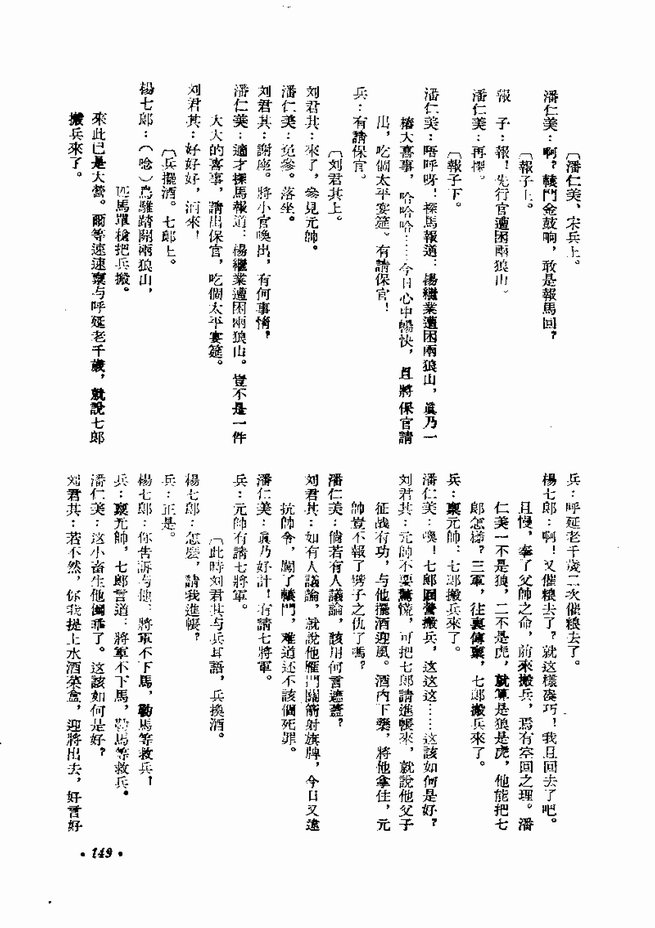 〔潘仁美、宋兵上。
潘仁美：啊？轅門金鼓响，敢是報馬回？
〔報子上。
報　子：報！先行官遭困兩狼山。
潘仁美：再探。
〔報子下。
潘仁美：唔呼呀！探馬報道：楊繼業遭困兩狼山，眞乃一
樁大喜事，哈哈哈！……今日心中暢快，且將保官請
出，吃個太平宴筵。有請保官！
兵：有請保官。
〔刘君其上。
刘君其：來了，參見元帥。
潘仁美：免參。落坐。
刘君其：謝座。將小官喚出，有何事情？
潘仁美：適才探馬報道：楊繼業遭困兩狼山。豈不是一件
大大的喜事，請出保官，吃個太平宴筵。
刘君其：好好好，酒來！
〔兵擺酒。七郎上。
楊七郎：（唸）烏騅踏開兩狼山，
匹馬單槍把兵搬。
來此已是大營。爾等速速禀与呼延老千歲，就說七郎
搬兵來了。
兵：呼延老千歲二次催粮去了。
楊七郎：啊！又催粮去了？就这樣凑巧！我且回去了吧。
且慢，奉了父帥之命，前來搬兵，焉有空回之理。潘
仁美一不是狼，二不是虎，就算是狼是虎，他能把七
郎怎樣？三軍，往裏傳禀，七郎搬兵來了。
兵：禀元帥：七郎搬兵來了。
潘仁美：噢！七郎回營搬兵，这这这……这該如何是好？
刘君其：元帅不要驚慌，可把七郎請進帳來，就說他父子
征战有功，与他擺酒迎風。酒内下藥，將他拿住，元
帥豈不報了劈子之仇了嗎？
潘仁美：倘若有人議論，該用何言遮蓋？
刘君其：如有人議論，就說他雁門關箭射旗牌，今日又違
抗帥令，闖了轅門，难道还不該個死罪。
潘仁美：眞乃好計！有請七將軍。
兵：元帥有請七將軍。
〔此時刘君其与兵耳語，兵換酒。
楊七郎：怎麼，請我進帳？
兵：正是。
楊七郎：你告訴与他：將軍不下馬，勒馬等救兵！
兵：禀元帥，七郎言道：將軍不下馬，勒馬等救兵。
潘仁美：这小畜生他闖乖了。这該如何是好？
刘君其：若不然，你我提上水酒菜盒，迎將出去，好言好
·149·